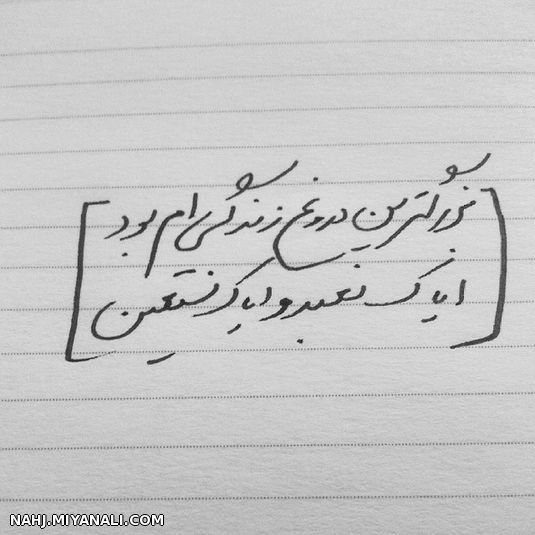 [بزرگترین دروغ زندگی ام بود
ایاک نعبد و ایاک نستعین]
NAHJ.MIYANALI.COM